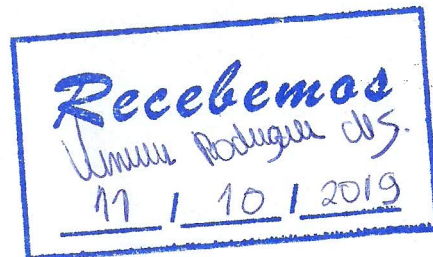 Recebemos
Rodrigues
11 / 10 / 2019